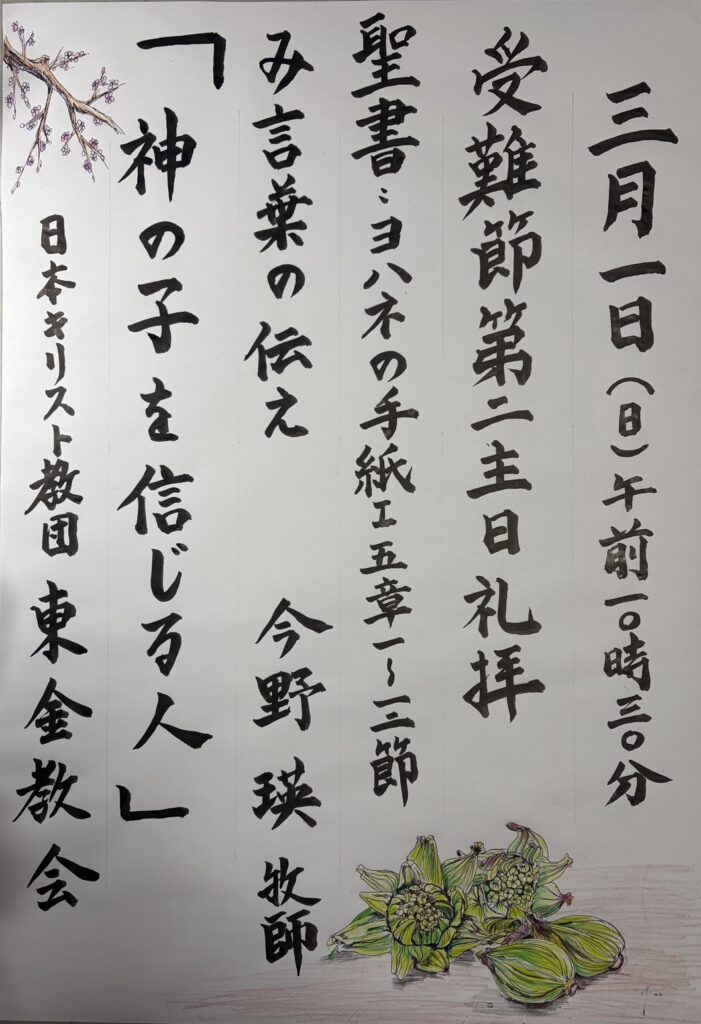 三月一日(日)午前一〇時三〇分
受難節第二主日礼拝
聖書:ヨハネの手紙Ⅰ五章一~一二節
み言葉の伝え 今野瑛牧師
「神の子を信じる人」
日本キリスト教団 東金教会